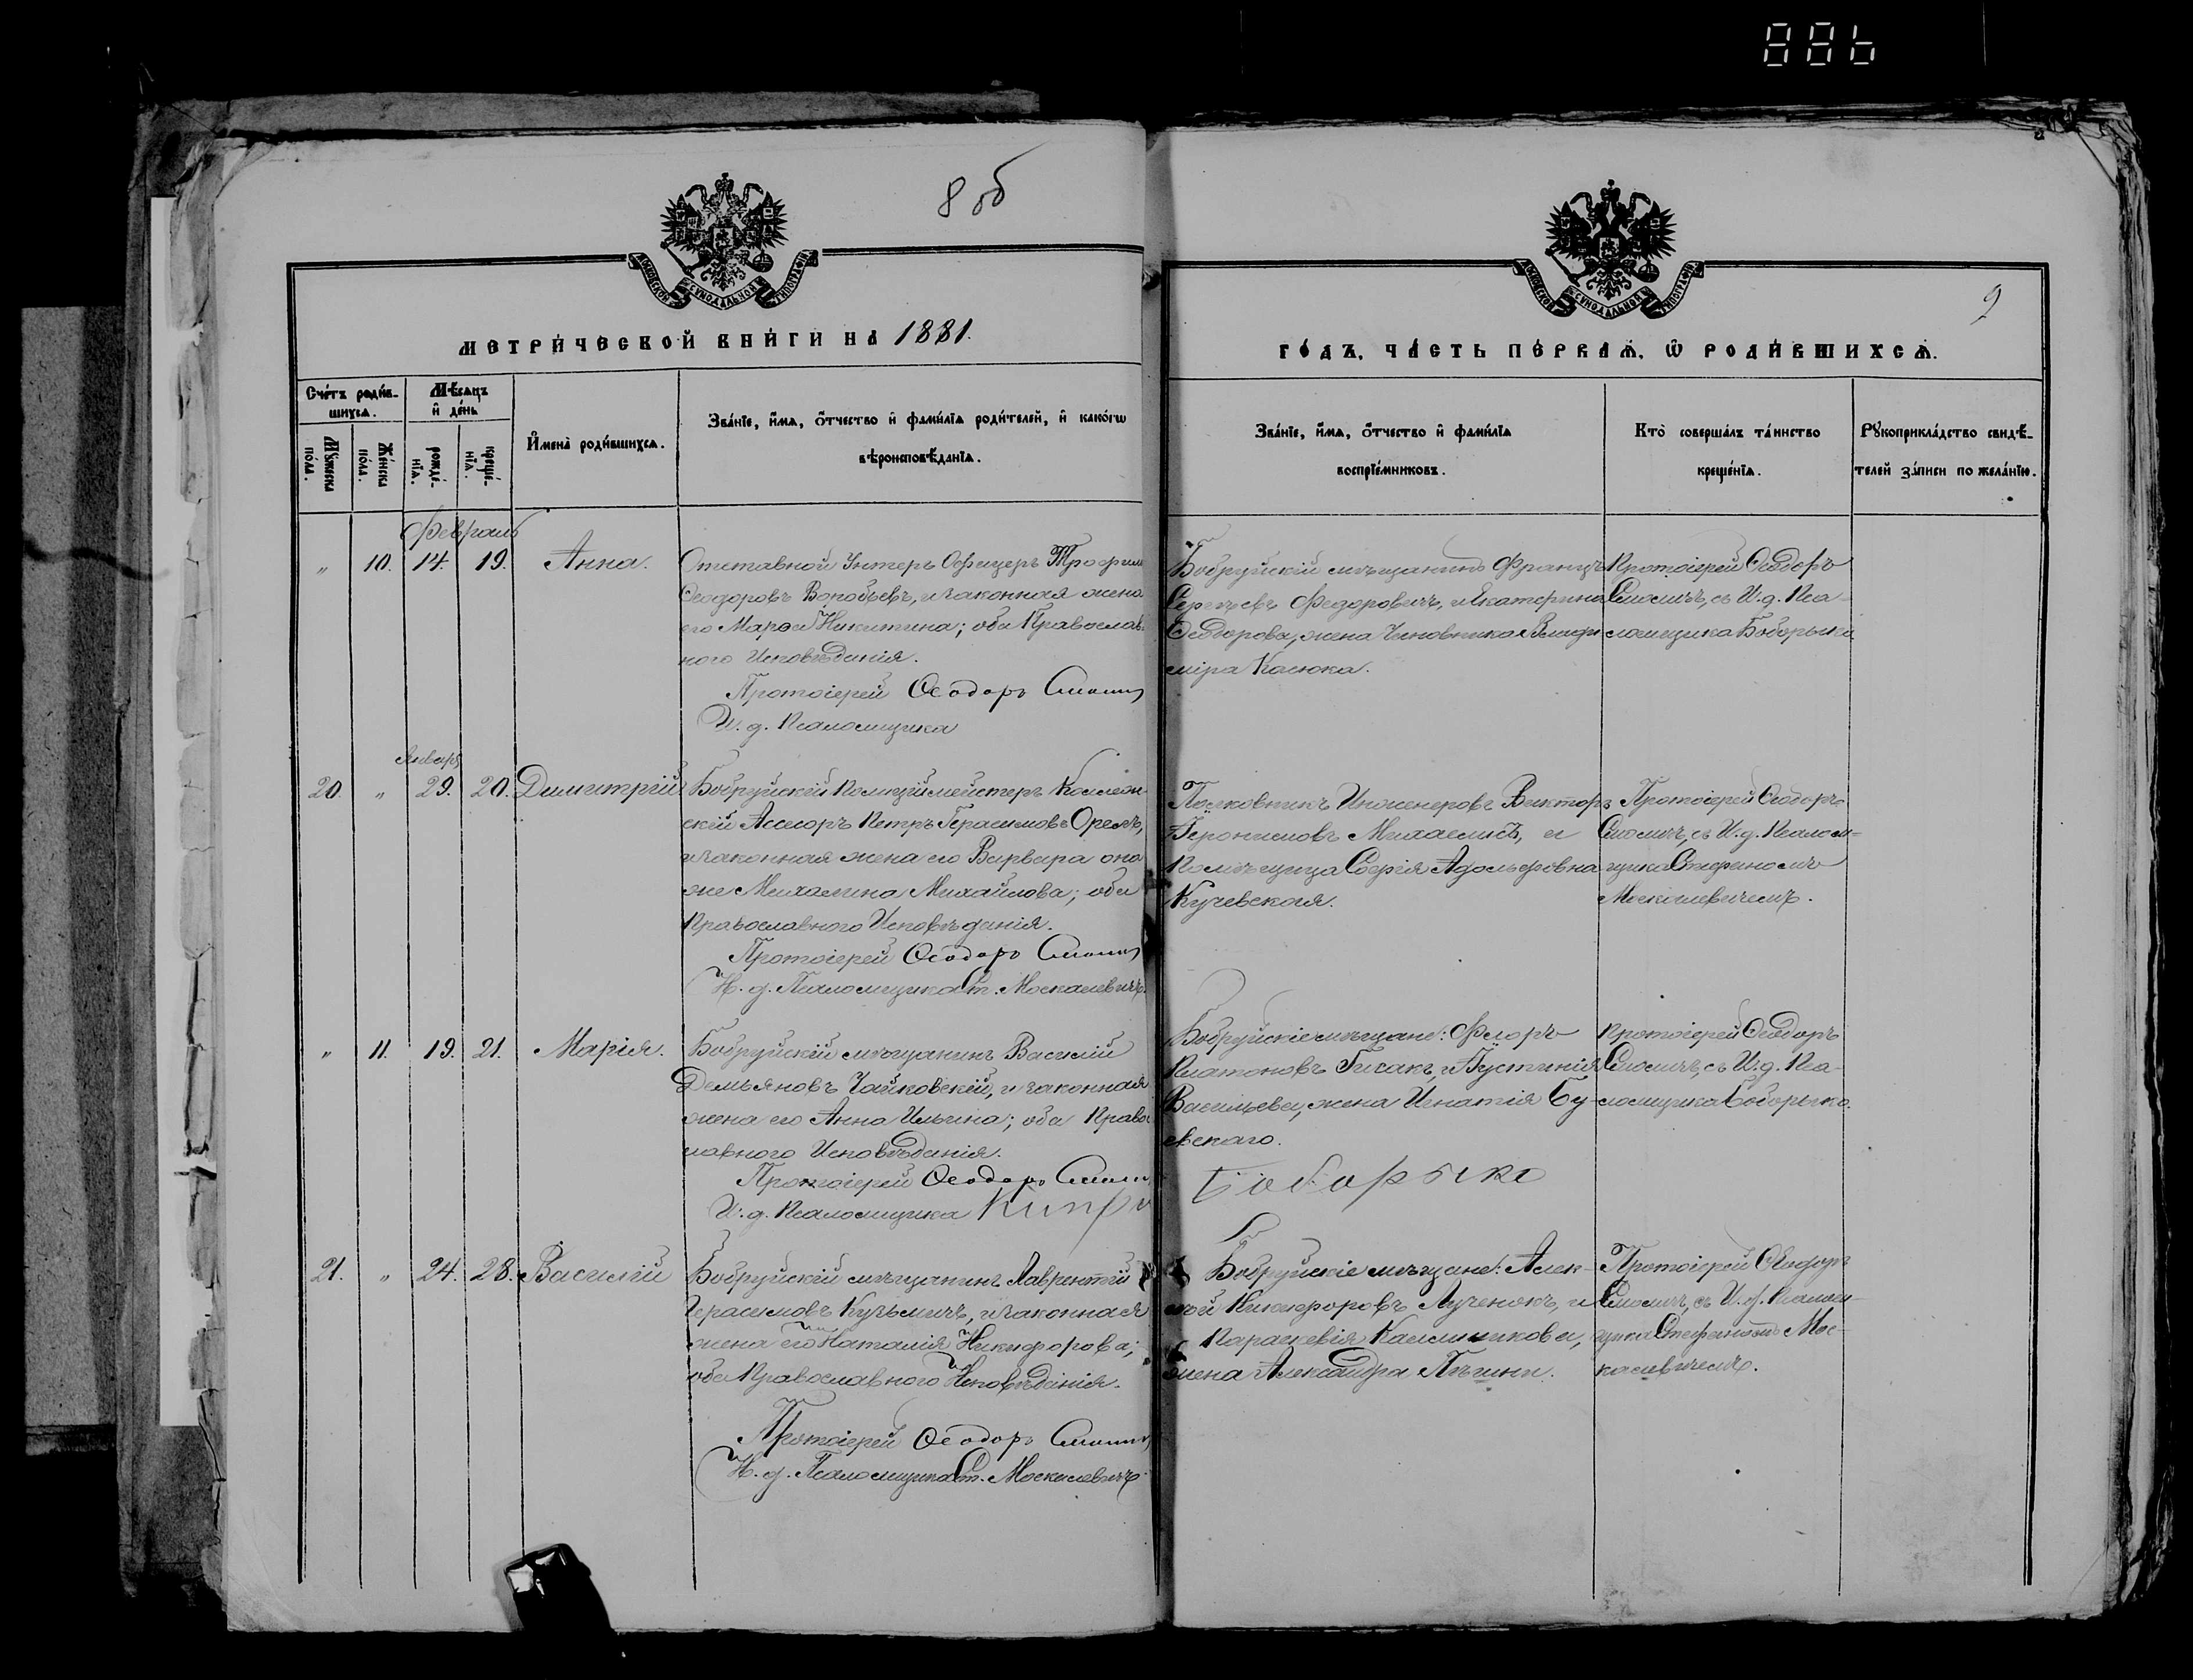 886
8 об
МОСКОВСКОЙ СѴНОДАЛЬНОЙ ТИПОГРАФІИ
МЕТРИ́ЧЕСКОЙ КНИ́ГИ НА 1881.
Сче́тъ роди́в-
шихсѧ.
Мꙋ́жеска
по́ла.
Же́нска
по́ла.
Мѣ́сѧцъ
и҆ де́нь
рожде́-
нїѧ.
креще́-
нїѧ.
И҆мена̀ роди́вшихсѧ.
Зва́нїе, и҆́мѧ, ѻ҆́тчество и҆ фами́лїѧ роди́телей, и҆ како́гѡ
вѣроисповѣ́данїѧ.
Февраль
„ 10. 14. 19. Анна.
Отставной Унтеръ Офицеръ Трофим
Ѳеодоровъ Воробьевъ, и законная жена
его Марѳа Никитина; оба Православ
ного Исповѣданія.
Протоіерей Ѳеодоръ Смолич
И. д. Псаломщика
Январ
20. „ 29. 20. Димитрій
Бобруйскій Полицiймейстеръ Коллеж-
скій Ассесоръ Петръ Герасимовъ Оремъ,
и законная жена его Варвара она
же Михалина Михайлова; оба
Православного Исповѣданія.
Протоіерей Ѳеодоръ Смолич
И. д. Псаломщика Ст. Москалевичъ.
„ 11. 19. 21. Марія.
Бобруйскій мѣщанинъ Василій
Демьяновъ Чайковскій, и законная
жена его Анна Ильина; оба Право
славного Исповѣданія.
Протоіерей Ѳеодоръ Смолич
И. д. Псаломщика
21. „ 24. 28. Василій
Бобруйскій мѣщанинъ Лаврентій
Герасимовъ Кузьмичъ, и законная
жена его Наталія Никифорова;
оба Православного Исповѣданія.
Протоіерей Ѳеодоръ Смолич
И. д. Псаломщика Ст. Москалевичъ
9
МОСКОВСКОЙ СѴНОДАЛЬНОЙ ТИПОГРАФІИ
ГО́ДЪ, ЧА́СТЬ ПЕ́РВАѦ, Ѽ РОДИ́ВШИХСѦ.
Зва́нїе, и҆́мѧ, ѻ҆́тчество и҆ фами́лїѧ
воспрїе́мниковъ.
Кто̀ соверша́лъ та́инство
креще́нїѧ.
Рꙋкоприкла́дство свидѣ́-
телей за́писи по жела́нїю.
Бобруйскій мѣщанинъ Францъ
Сергѣевъ Федоровичъ, и Екатерина
Ѳеодорова, жена Чиновника Влади
міра Касюка.
Протоіерей Ѳеодоръ
Смоличъ, съ И. д. Пса-
ломщика Боборыко
Полковникъ Инженеровъ Викторъ
Іеронимовъ Михаелисъ, и
Помѣщица Софія Адольфовна
Кучевская.
Протоіерей Ѳеодоръ
Смоличъ, съ И. д. Псалом-
щика Стефаномъ
Москалевичемъ.
Бобруйскіе мѣщане: Флоръ
Платоновъ Гисакъ, и Іустинія
Васильева, жена Игнатія Бу-
евскаго.
Протоіерей Ѳеодоръ
Смоличъ, съ И. д. Пса-
ломщика Боборыко.
Боборыко
Бобруйскіе мѣщане: Алек-
сѣй Никифоровъ Лученокъ, и
Параскевія Калинникова,
жена Александра
Протоіерей Ѳеодоръ
Смоличъ, съ И. д. Псалом-
щика Стефаномъ Мос-
калевичемъ.